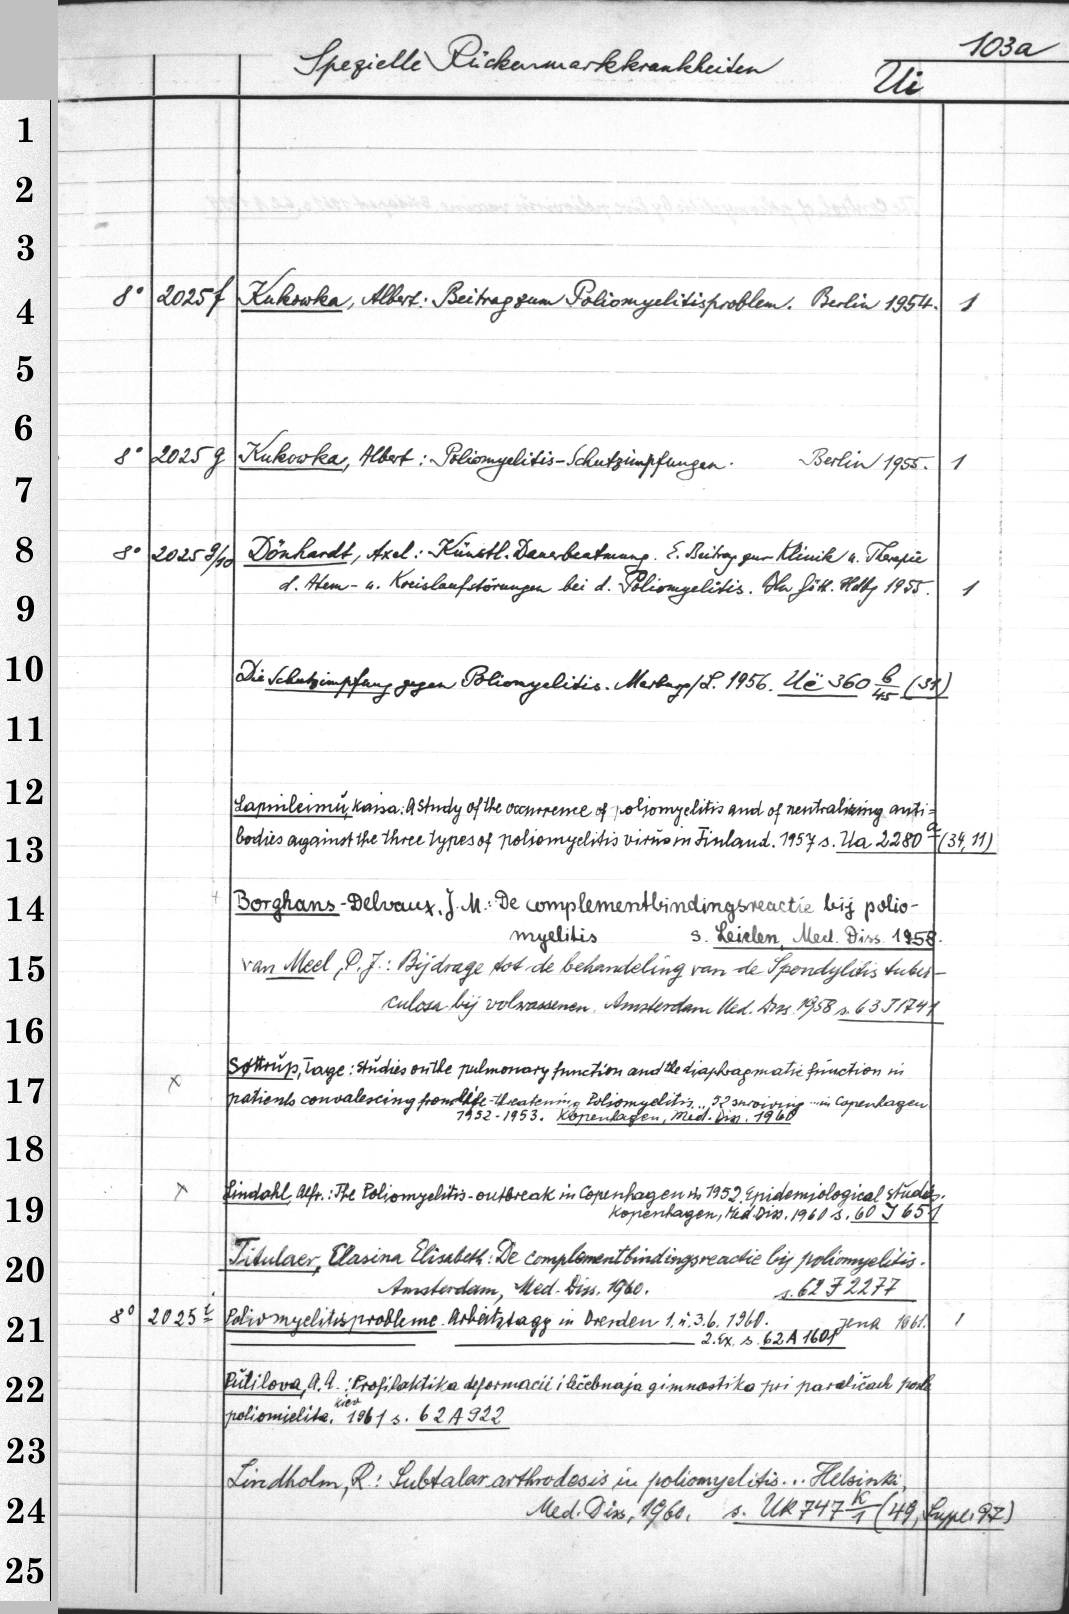 103a
Spezielle Rückenmarkkrankheiten Ui
1
2
3
4 8° 2025 f Kukowka, Albert: Beitrag zum Poliomyelitisproblem. Berlin 1954. 1
5
6
8° 2025 g Kukowka, Albert: Poliomyelitis-Schutzimpfungen. Berlin 1955. 1
7
8 8° 2025 g/10 Dönhardt, Axel: Künstl. Dauerbeatmung. E. Beitrag zur Klinik u. Therapie
9 d. Atem- u. Kreislaufstörungen bei d. Poliomyelitis. Bln Gött. Hdbg 1955. 1
10 Die Schutzimpfung gegen Poliomyelitis. Marburg/L. 1956. Uë 360 b/45 (31)
11
12 Lapinleimu, Kaisa: A study of the occurrence of poliomyelitis and of neutralizing anti=
13 bodies against the three types of poliomyelitis virus in Finland. 1957 s. Ua 2280 a (34,11)
14 Borghans-Delvaux, J. M.: De complementbindingsreactie bij polio-
myelitis s. Leiden, Med. Diss. 1958.
15 van Meel, P. J.: Bijdrage tot de behandeling van de Spondylitis tuber-
culosa bij volwassenen. Amsterdam Med. Diss. 1958 s. 63 J 1741
16
17 x Søttrup, Tage: Studies on the pulmonary function and the diaphragmatic function in
patients convalescing from life-threatening Poliomyelitis... surviving ... in Copenhagen
1952-1953. Kopenhagen, Med. Diss. 1960
18
19 x Lindahl, Alfr.: The Poliomyelitis-outbreak in Copenhagen in 1952. Epidemiological studies.
Kopenhagen, Med. Diss. 1960 s. 60 J 651
20 Titulaer, Clasina Elisabeth: De complementbindingsreactie bij poliomyelitis.
Amsterdam, Med. Diss. 1960. s. 62 J 2277
21 8° 2025 i Poliomyelitisprobleme. Arbeitstagg in Dresden 1.-3.6. 1960. Jena 1961. 1
2. Ex. s. 62 A 1601
22 Putilova, A. A.: Profilaktika deformacii i lečebnaja gimnastika pri paraličach posle
poliomielita. Kiev 1961 s. 62 A 922
23 Lindholm, R.: Subtalar arthrodesis in poliomyelitis... Helsinki,
24 Med. Diss, 1960. s. Uk 747 k/1 (49, Suppl. 97)
25